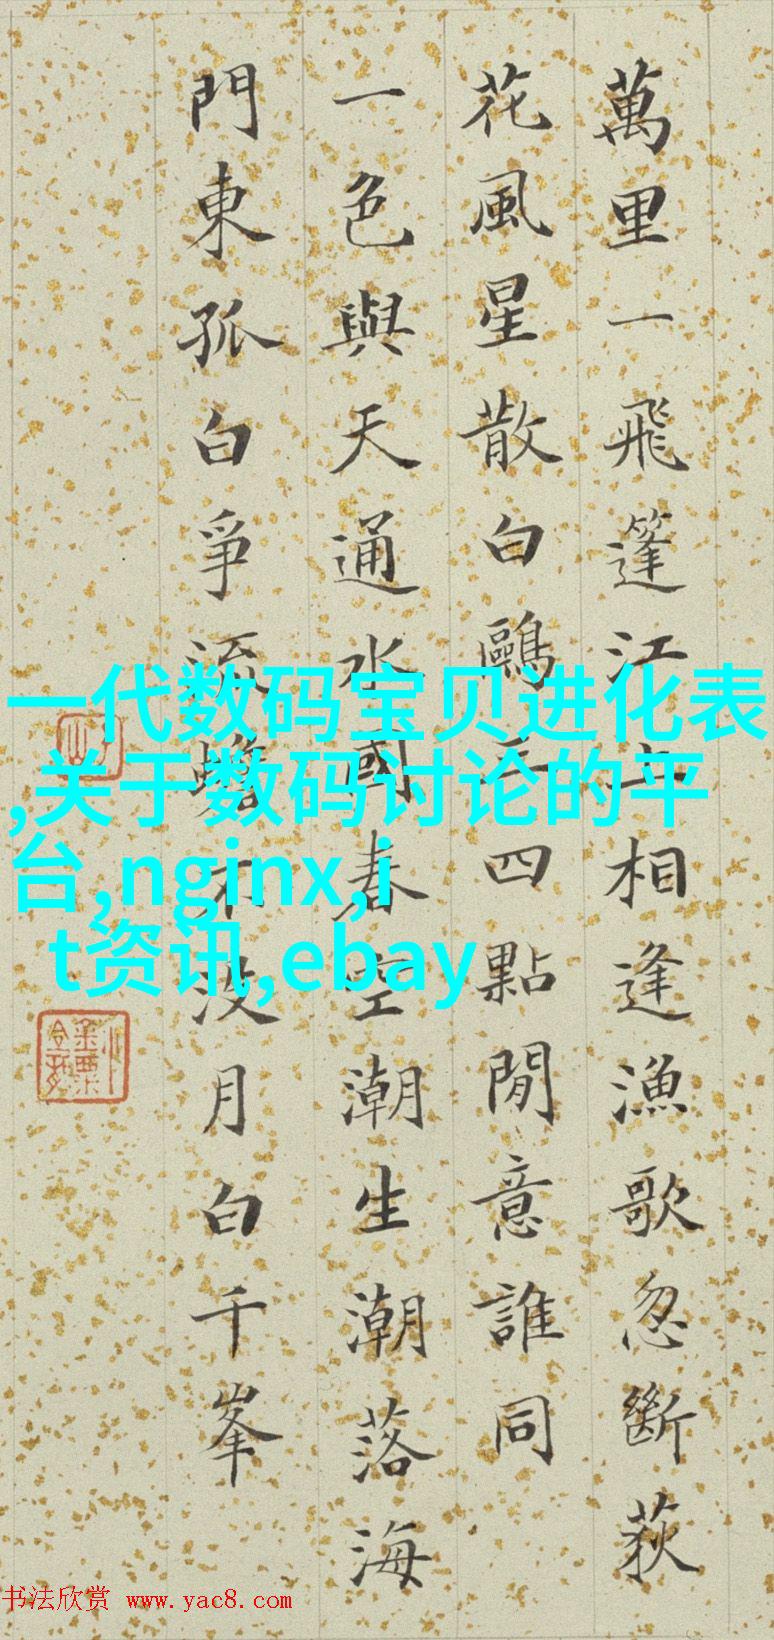 萬里一飛篷江上相逢漁歌忽斷荻
花風星散白鷗三四點閒意誰同
一色與天通水國春空潮生潮落海
門東孤白爭流蟾不沒月白千峯
一代数码宝贝进化表
,关于数码讨论的平
台,nginx,i
t资讯,ebay
书法欣赏 www.yac8.com